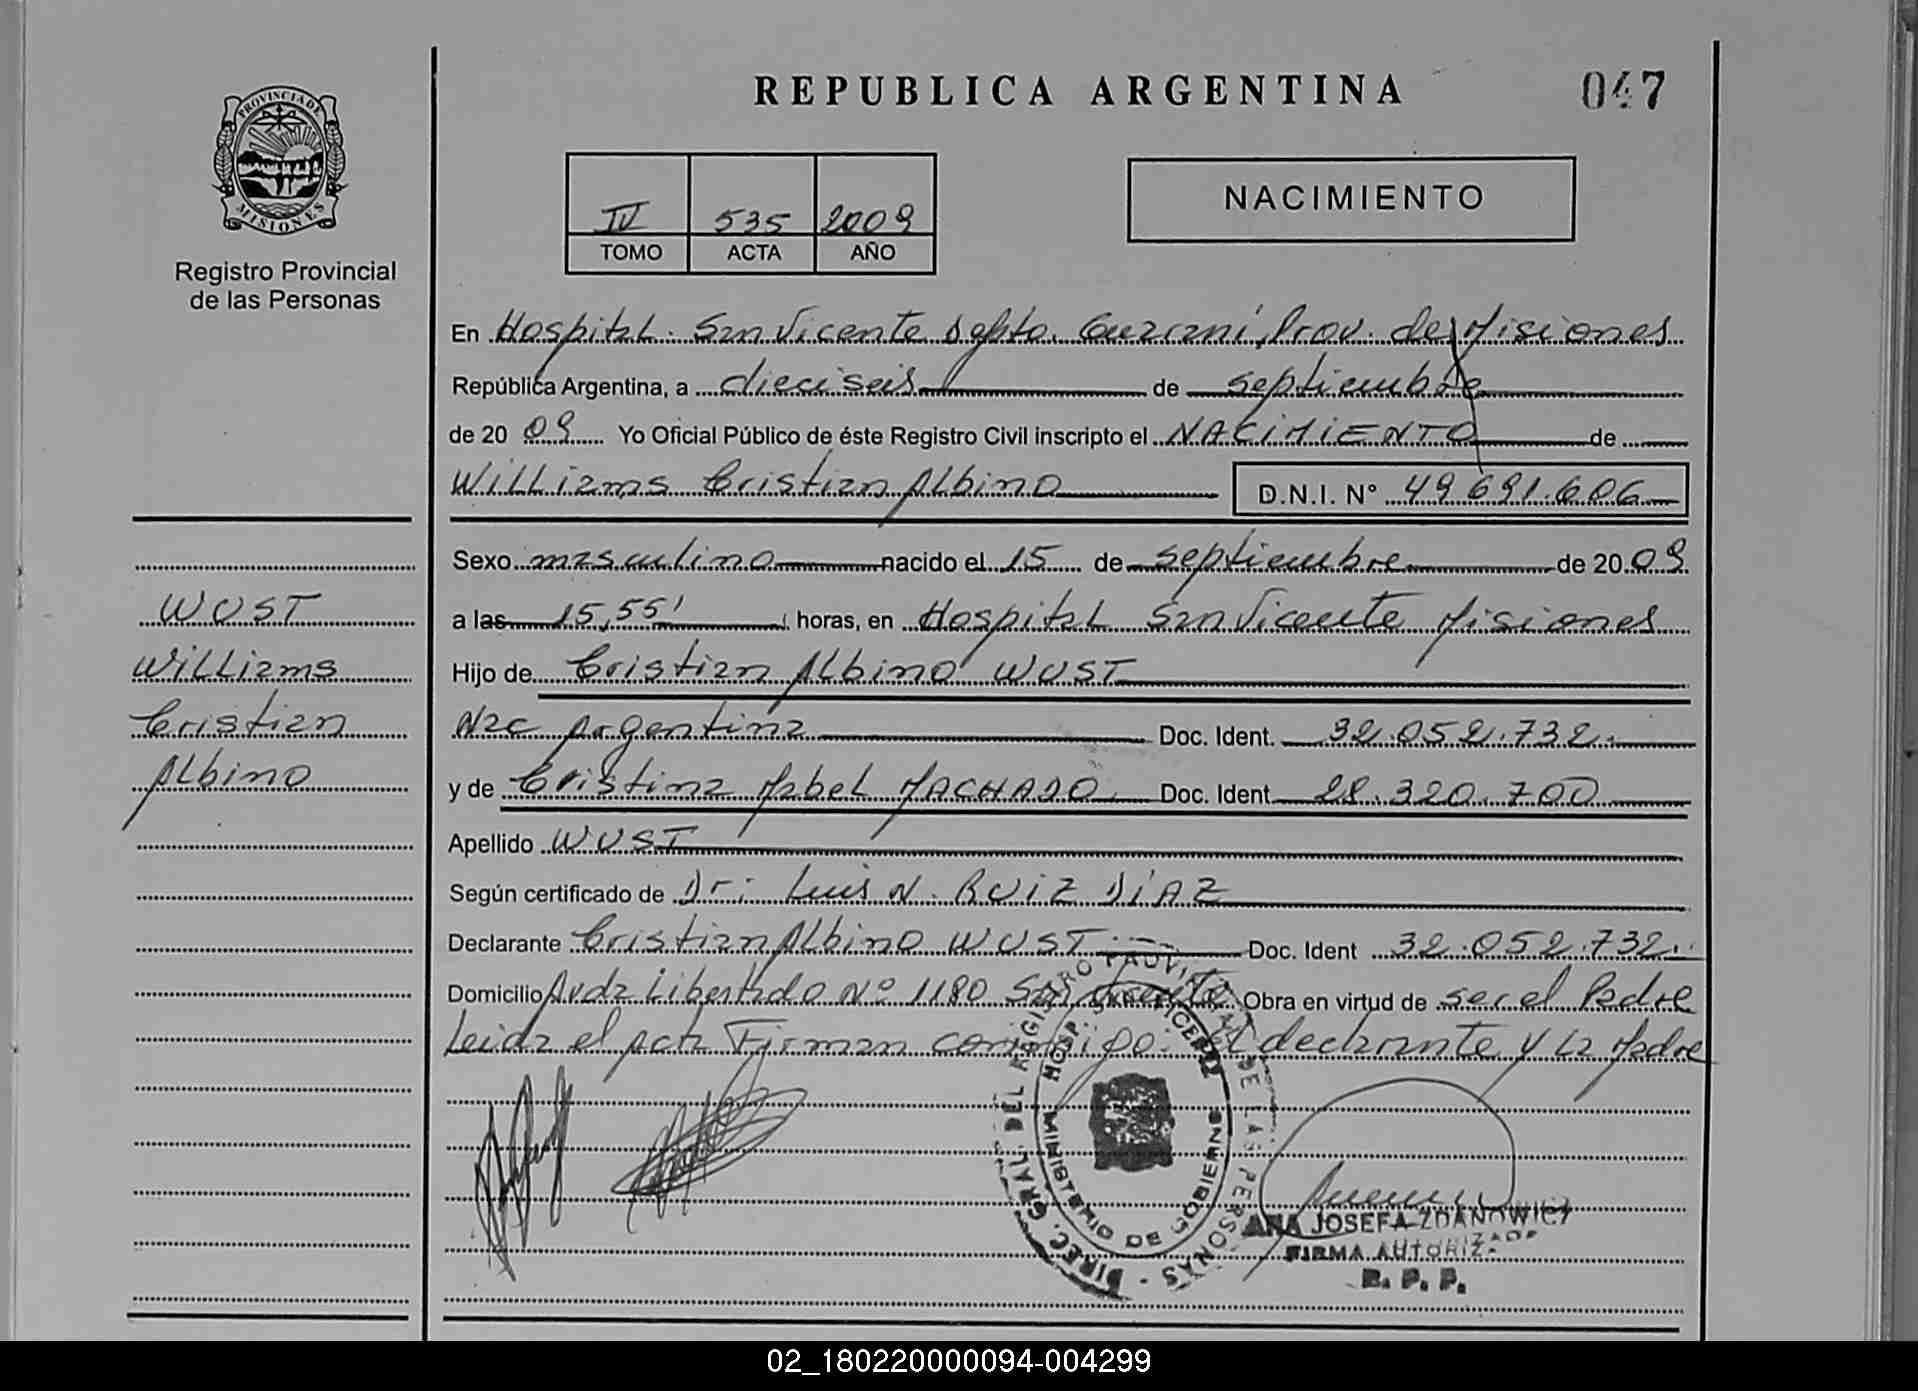 REPUBLICA ARGENTINA
047
PROVINCIA DE
MISIONES
Registro Provincial
de las Personas
IV 535 2009
TOMO ACTA AÑO
NACIMIENTO
En Hospital San Vicente Dpto. Guaraní, Prov. de Misiones
República Argentina, a dieciseis de septiembre
de 20 09 Yo Oficial Público de éste Registro Civil inscripto el NACIMIENTO de
Williams Cristian Albino D.N.I. N° 49691.606
Sexo masculino nacido el 15 de septiembre de 20 09
a las 15,55' horas, en Hospital San Vicente Misiones
Hijo de Cristian Albino WUST
Nac Argentina Doc. Ident. 32.052.732.
y de Cristina Mabel MACHADO Doc. Ident 28.320.700
Apellido WUST
Según certificado de Dr: Luis N. RUIZ DIAZ
Declarante Cristian Albino WUST Doc. Ident 32.052.732.
Domicilio Avda Libertado Nº 1180 San Vicente Obra en virtud de ser el Padre
Leida el acta Firman conmigo: El declarante y la Madre
WUST
Williams
Cristian
Albino
DIREC. GRAL. DEL REGISTRO PROVINCIAL DE LAS PERSONAS
HOSP. SAN VICENTE
MINISTERIO DE GOBIERNO
ANA JOSEFA ZDANOWICZ
FIRMA AUTORIZADA
R. P. P.
02_180220000094-004299